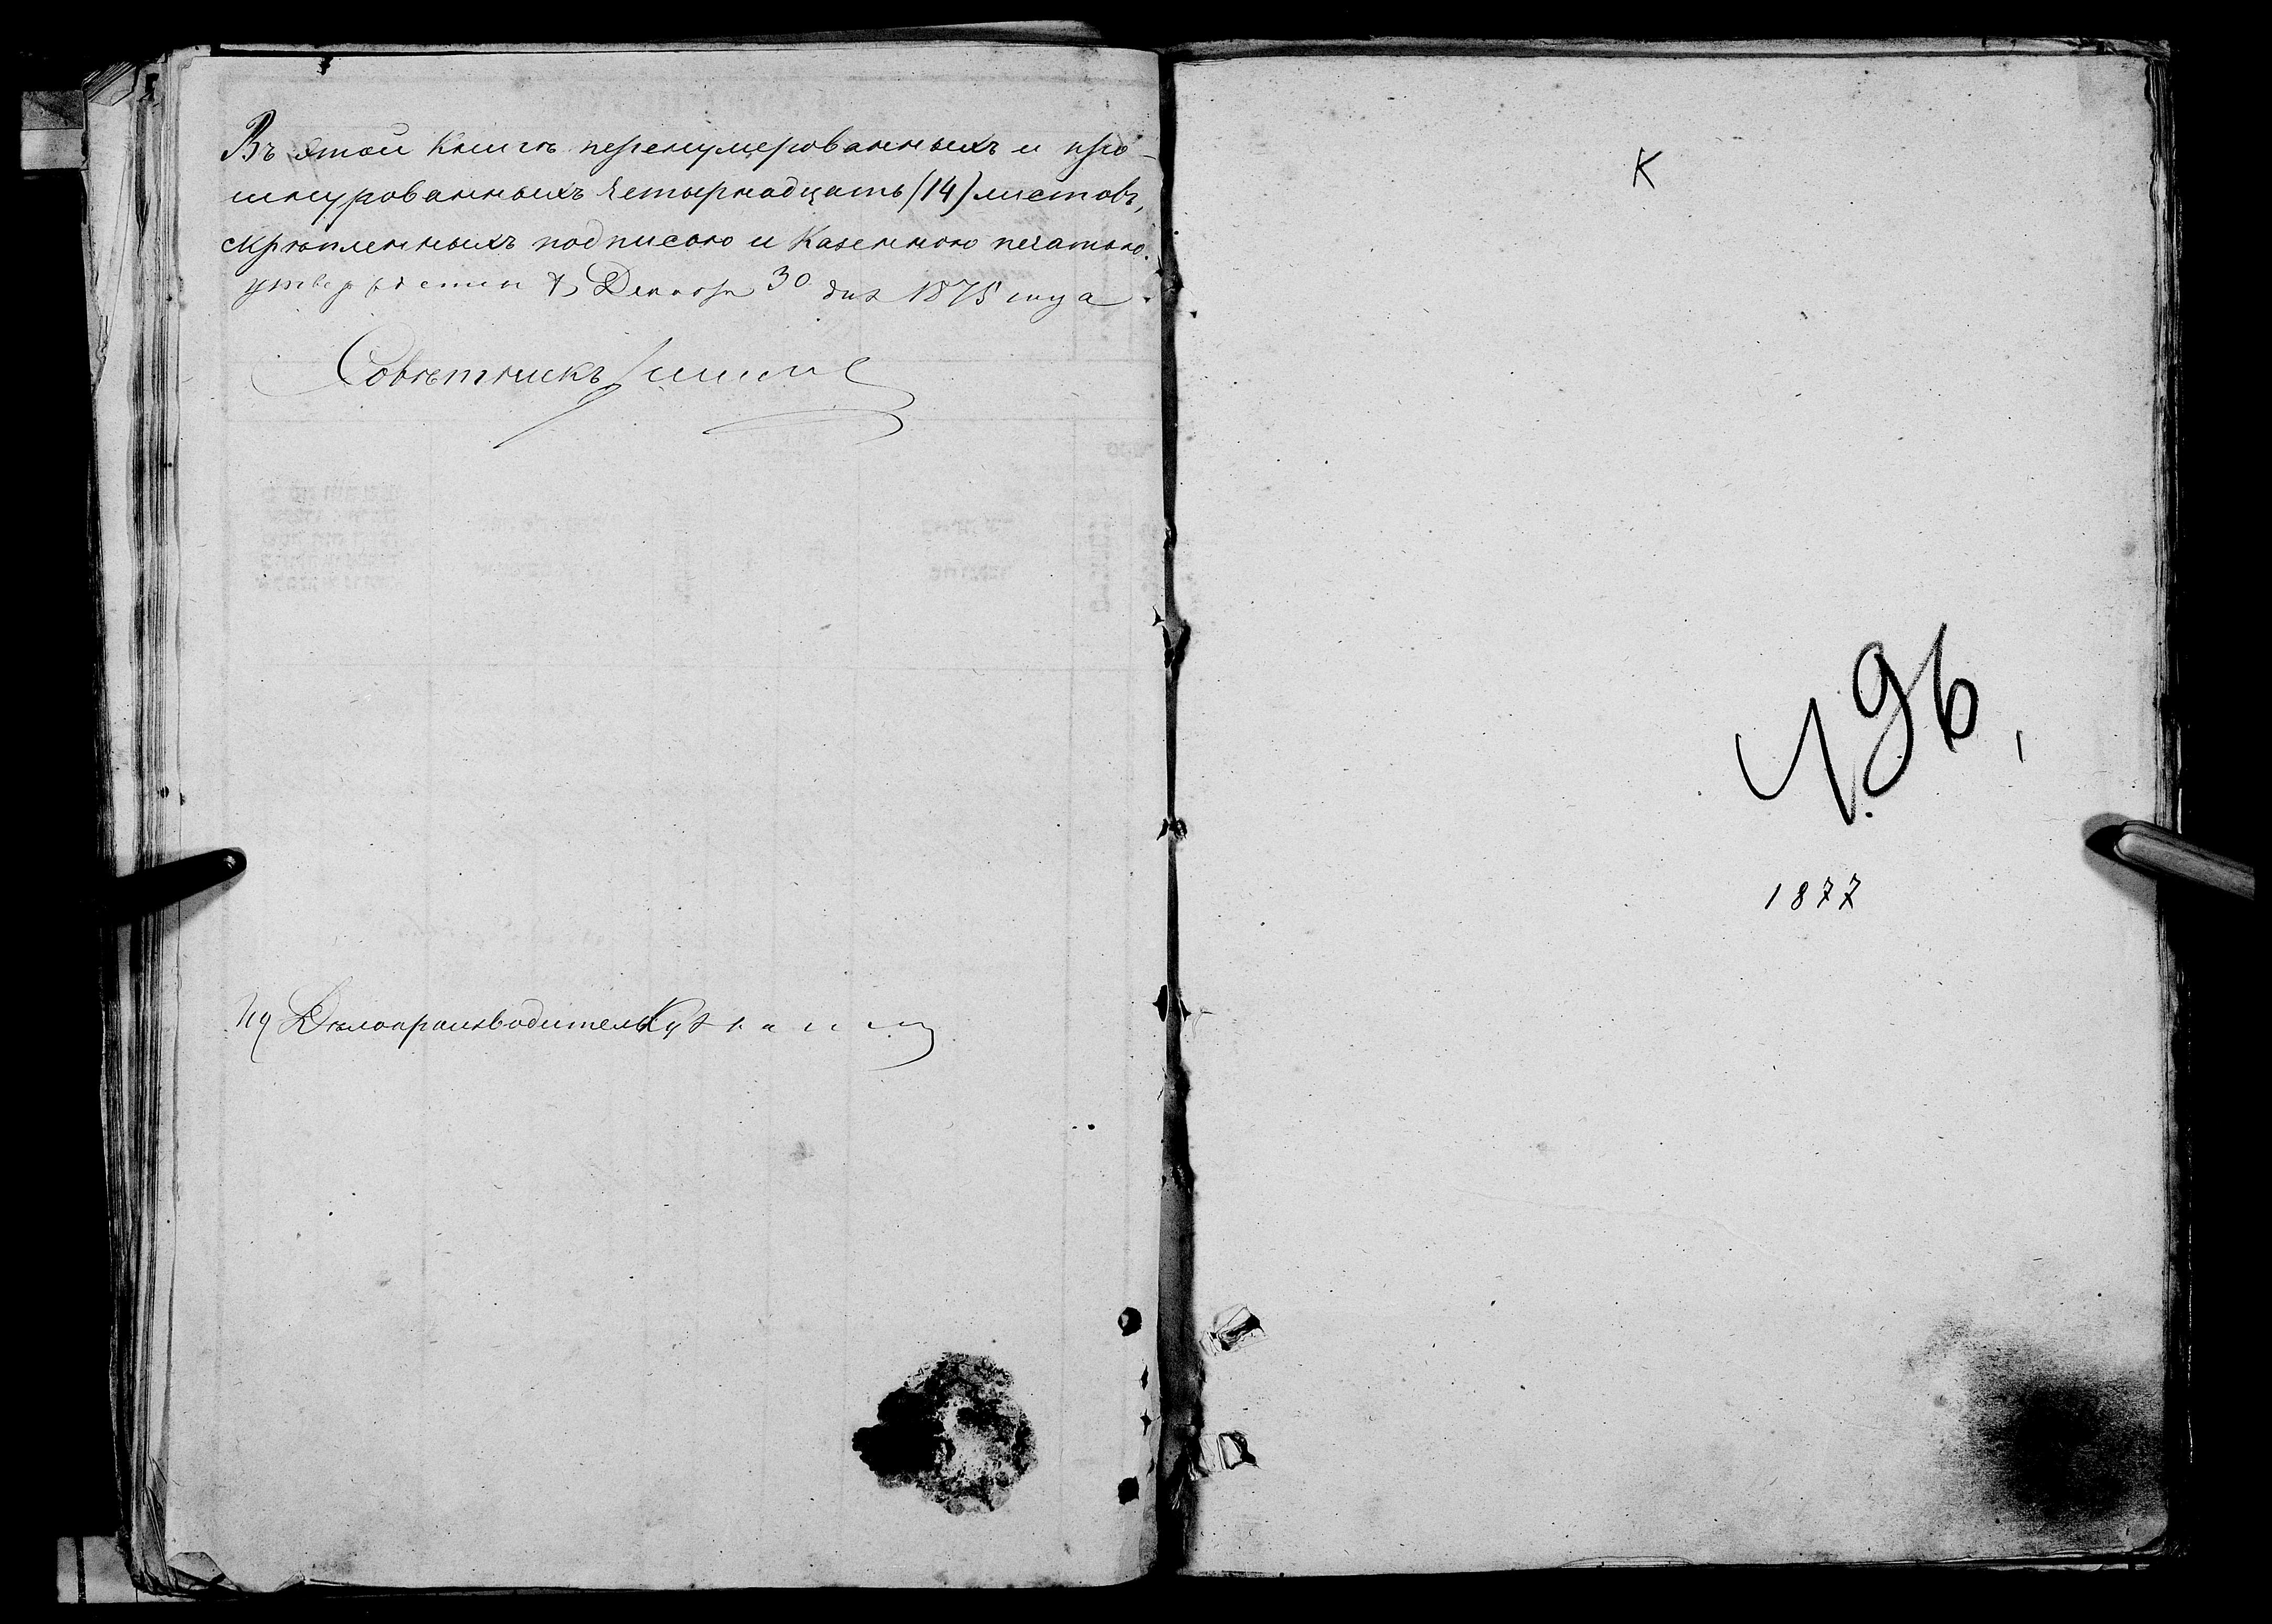 Въ этой Книгѣ перенумерованныхъ и про-
шнурованныхъ Четырнадцать (14) листовъ,
скрѣпленныхъ подписью и Казенною печатью
Декабря 30 дня 1875 года
Совѣтникъ
Ид Дѣлопроизводитель
К
Ч 96,
1877